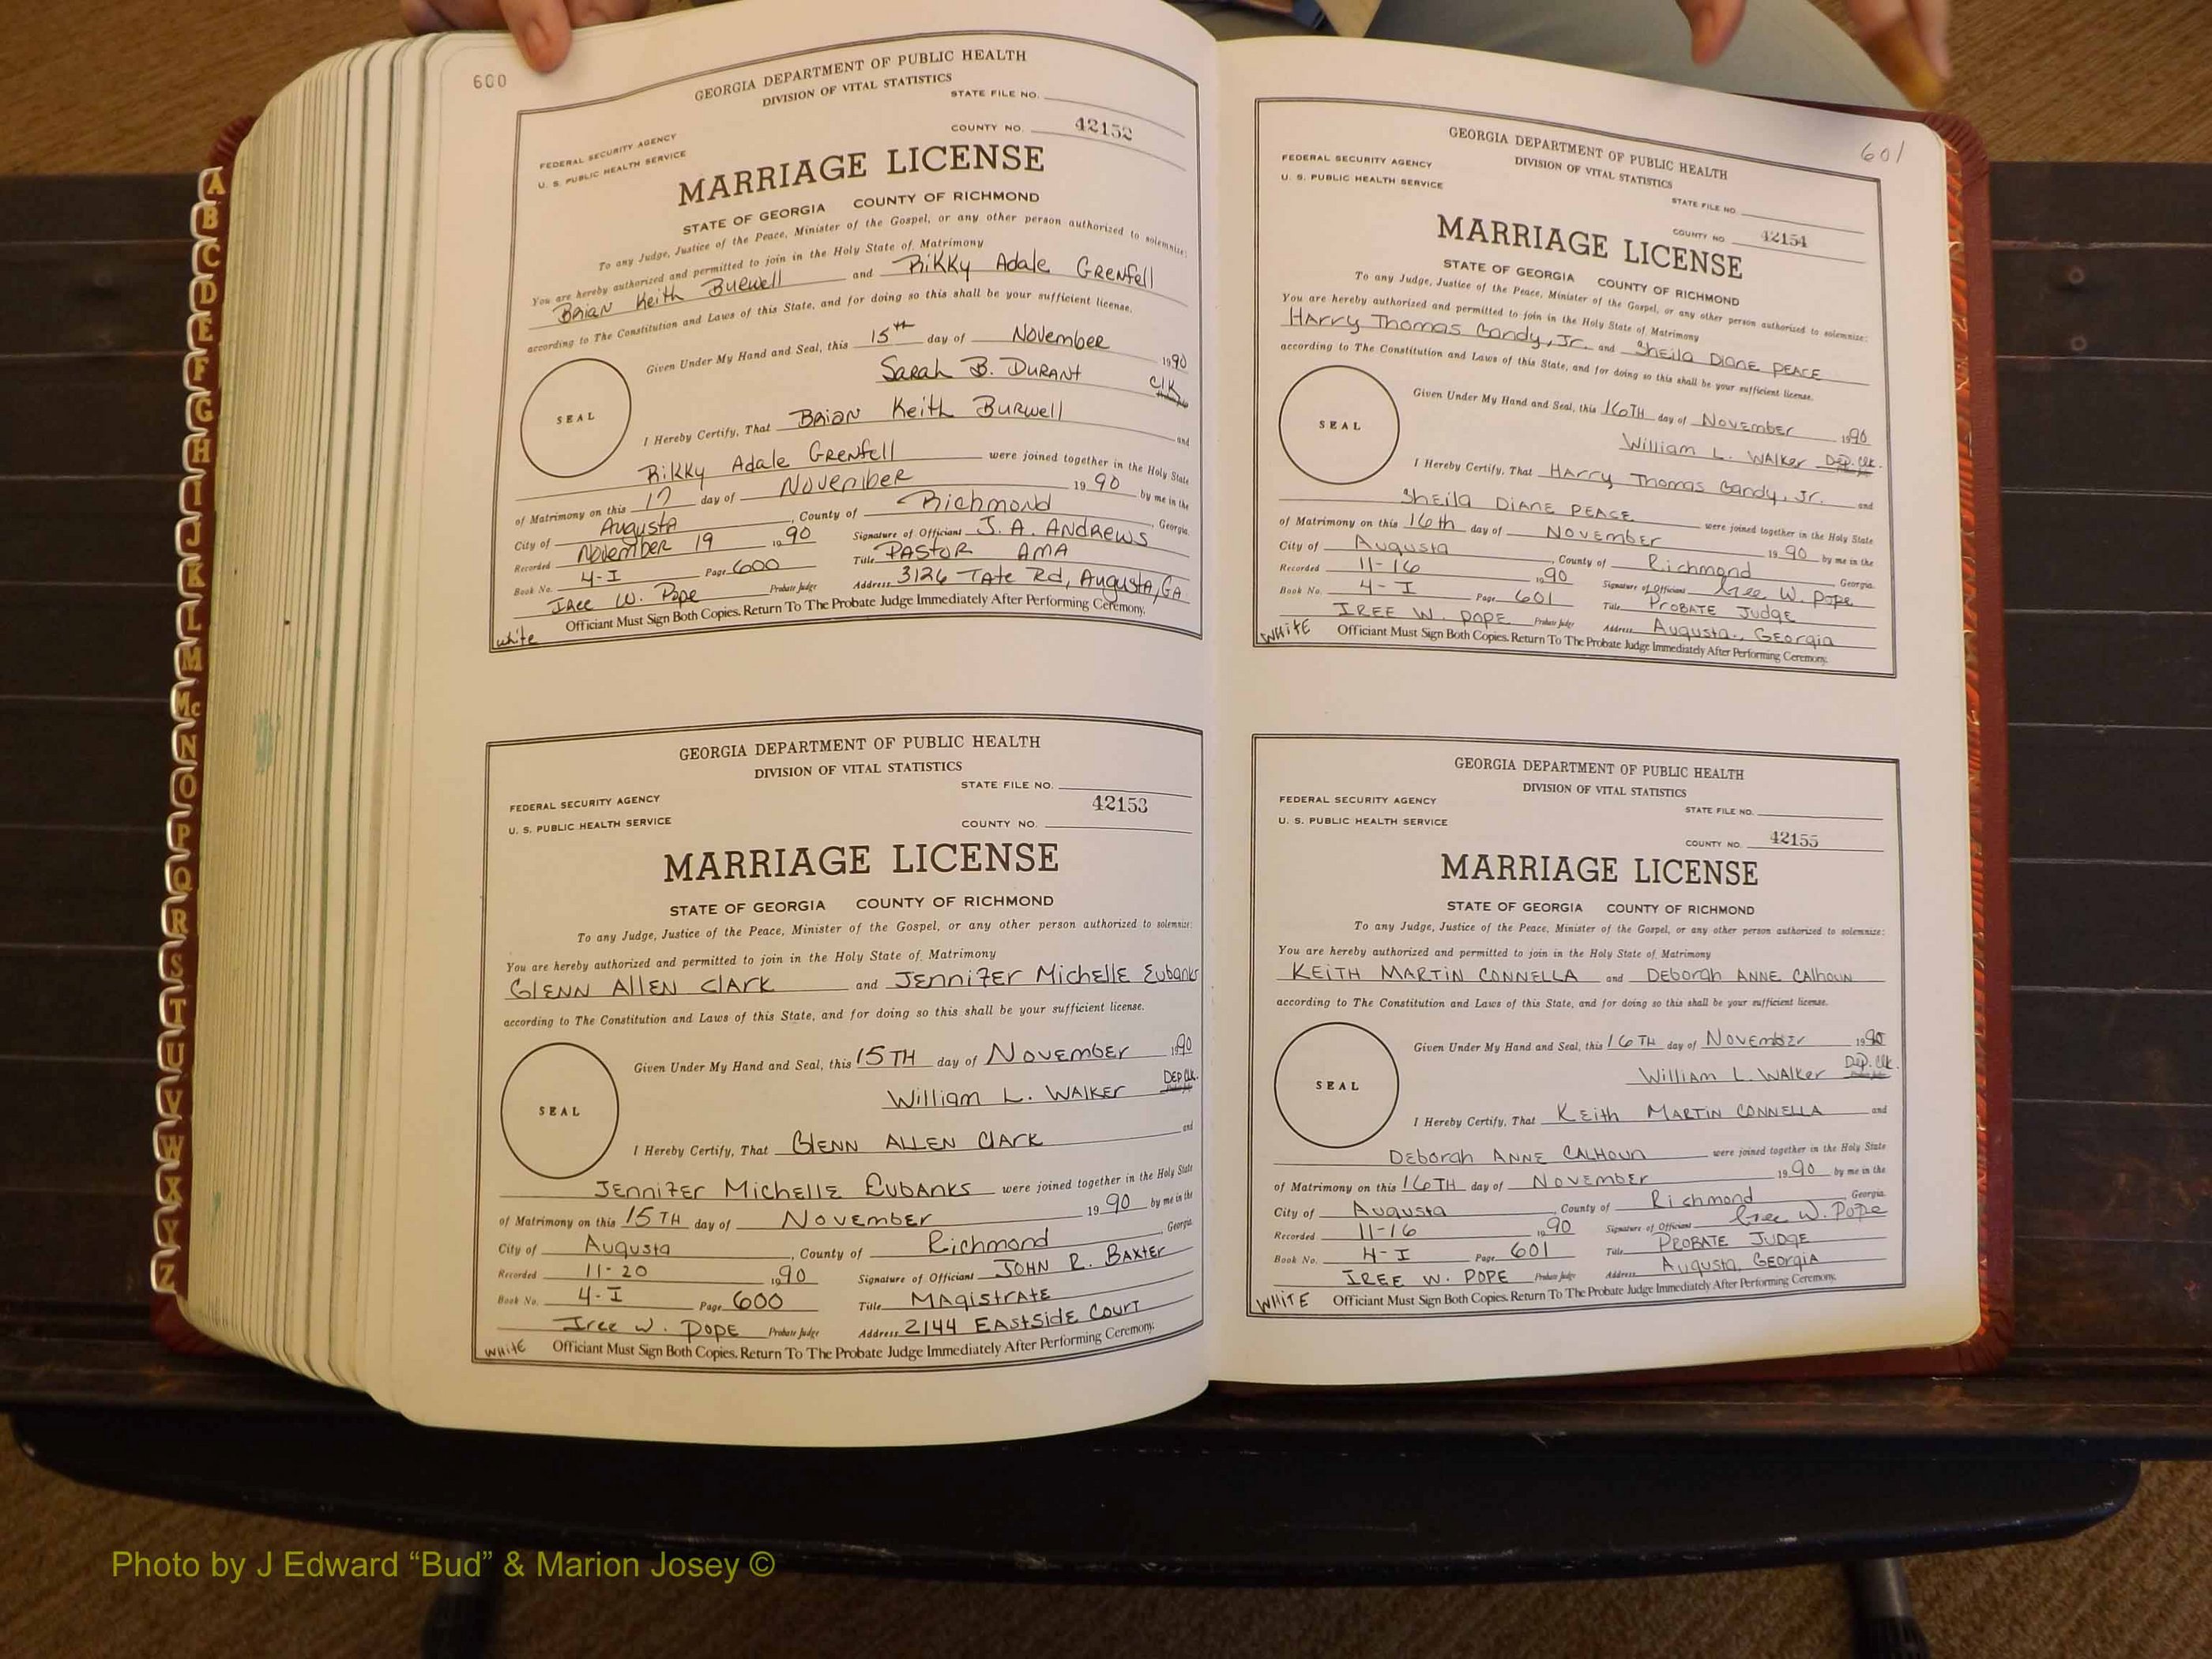 600
GEORGIA DEPARTMENT OF PUBLIC HEALTH
DIVISION OF VITAL STATISTICS
STATE FILE NO.
COUNTY NO. 42152
FEDERAL SECURITY AGENCY
U. S. PUBLIC HEALTH SERVICE
MARRIAGE LICENSE
STATE OF GEORGIA COUNTY OF RICHMOND
To any Judge, Justice of the Peace, Minister of the Gospel, or any other person authorized to solemnize:
You are hereby authorized and permitted to join in the Holy State of Matrimony
Brian Keith Burwell and Rikky Adale Grenfell
according to The Constitution and Laws of this State, and for doing so this shall be your sufficient license.
Given Under My Hand and Seal, this 15th day of November 1990
Sarah B. Durant Clk
SEAL
I Hereby Certify, That Brian Keith Burwell and
Rikky Adale Grenfell were joined together in the Holy State
of Matrimony on this 17 day of November 19 90 by me in the
City of Augusta, County of Richmond, Georgia.
Recorded November 19 1990 Signature of Officiant J. A. Andrews
Book No. 4-I Page 600 Title Pastor AMA
Iree W. Pope Probate Judge Address 3126 Tate Rd, Augusta, GA.
white Officiant Must Sign Both Copies. Return To The Probate Judge Immediately After Performing Ceremony.
GEORGIA DEPARTMENT OF PUBLIC HEALTH
DIVISION OF VITAL STATISTICS
STATE FILE NO.
FEDERAL SECURITY AGENCY
U. S. PUBLIC HEALTH SERVICE
COUNTY NO. 42153
MARRIAGE LICENSE
STATE OF GEORGIA COUNTY OF RICHMOND
To any Judge, Justice of the Peace, Minister of the Gospel, or any other person authorized to solemnize:
You are hereby authorized and permitted to join in the Holy State of Matrimony
Glenn Allen Clark and Jennifer Michelle Eubanks
according to The Constitution and Laws of this State, and for doing so this shall be your sufficient license.
Given Under My Hand and Seal, this 15TH day of November 1990
William L. Walker Dep Clk.
SEAL
I Hereby Certify, That Glenn Allen Clark and
Jennifer Michelle Eubanks were joined together in the Holy State
of Matrimony on this 15TH day of November 19 90 by me in the
City of Augusta, County of Richmond, Georgia.
Recorded 11-20 1990 Signature of Officiant John R. Baxter
Book No. 4-I Page 600 Title Magistrate
Iree W. Pope Probate Judge Address 2144 Eastside Court
WHITE Officiant Must Sign Both Copies. Return To The Probate Judge Immediately After Performing Ceremony.
601
GEORGIA DEPARTMENT OF PUBLIC HEALTH
DIVISION OF VITAL STATISTICS
FEDERAL SECURITY AGENCY
U. S. PUBLIC HEALTH SERVICE
STATE FILE NO.
COUNTY NO. 42154
MARRIAGE LICENSE
STATE OF GEORGIA COUNTY OF RICHMOND
To any Judge, Justice of the Peace, Minister of the Gospel, or any other person authorized to solemnize:
You are hereby authorized and permitted to join in the Holy State of Matrimony
Harry Thomas Gandy, Jr. and Sheila Diane Peace
according to The Constitution and Laws of this State, and for doing so this shall be your sufficient license.
Given Under My Hand and Seal, this 16TH day of November 1990
William L. Walker Dep. Clk.
SEAL
I Hereby Certify, That Harry Thomas Gandy, Jr. and
Sheila Diane Peace were joined together in the Holy State
of Matrimony on this 16th day of November 19 90 by me in the
City of Augusta, County of Richmond, Georgia.
Recorded 11-16 1990 Signature of Officiant Iree W. Pope
Book No. 4-I Page 601 Title Probate Judge
IREE W. POPE Probate Judge Address Augusta, Georgia
WHITE Officiant Must Sign Both Copies. Return To The Probate Judge Immediately After Performing Ceremony.
GEORGIA DEPARTMENT OF PUBLIC HEALTH
DIVISION OF VITAL STATISTICS
FEDERAL SECURITY AGENCY
STATE FILE NO.
U. S. PUBLIC HEALTH SERVICE
COUNTY NO. 42155
MARRIAGE LICENSE
STATE OF GEORGIA COUNTY OF RICHMOND
To any Judge, Justice of the Peace, Minister of the Gospel, or any other person authorized to solemnize:
You are hereby authorized and permitted to join in the Holy State of Matrimony
Keith Martin Connella and Deborah Anne Calhoun
according to The Constitution and Laws of this State, and for doing so this shall be your sufficient license.
Given Under My Hand and Seal, this 16TH day of November 1990
William L. Walker Dep. Clk.
SEAL
I Hereby Certify, That Keith Martin Connella and
Deborah Anne Calhoun were joined together in the Holy State
of Matrimony on this 16TH day of November 19 90 by me in the
City of Augusta, County of Richmond, Georgia.
Recorded 11-16 1990 Signature of Officiant Iree W. Pope
Book No. 4-I Page 601 Title Probate Judge
IREE W. POPE Probate Judge Address Augusta, Georgia
WHITE Officiant Must Sign Both Copies. Return To The Probate Judge Immediately After Performing Ceremony.
A
B
C
D
E
F
G
H
I
J
K
L
M
Mc
N
O
P
Q
R
S
T
U
V
W
X
Y
Z
Photo by J Edward “Bud” & Marion Josey ©